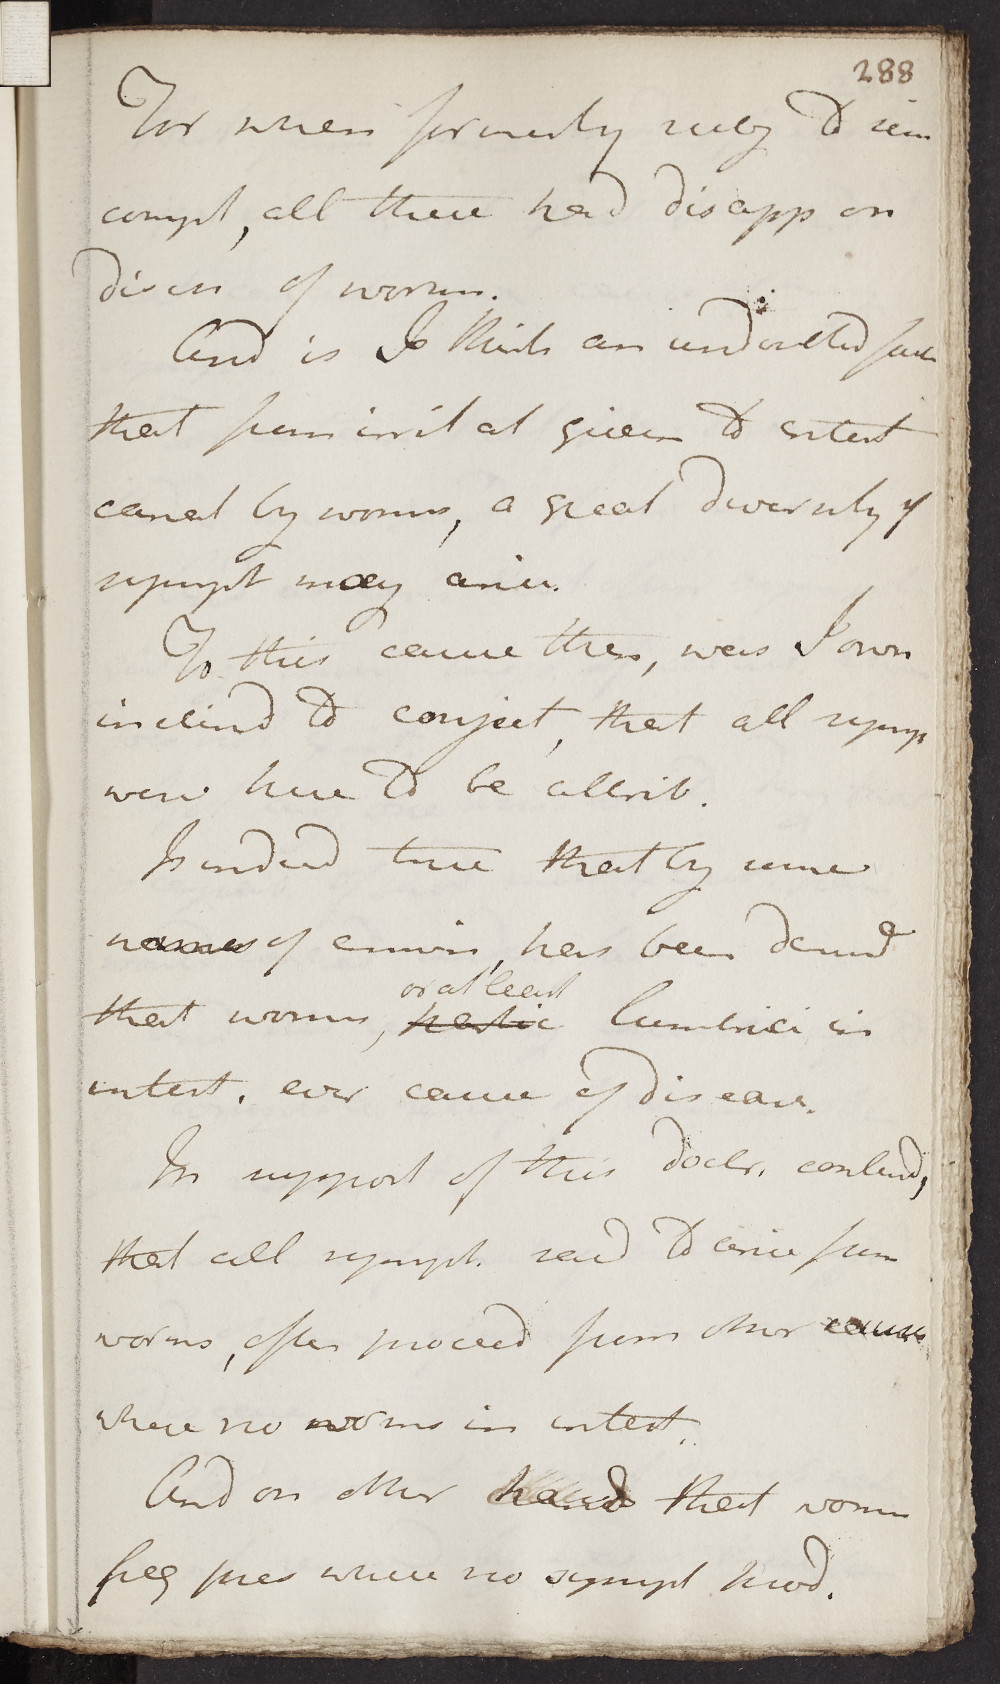 288
For when formerly subj to sim
compl, all these had disapp on
discn of worms.
And is I think an undoubted fact
that from irrit at given to intest
canal by worms, a great diversity of
sympt may arise.
To this cause then, was I own
inclind to conject, that all symp
were here to be attrib.
Is indeed true that by some
names of emin, has been denied
that worms, or at least lumbrici in
intest. ever cause of disease.
In support of this doctr. contend,
that all sympt. said to arise from
worms, often proceed from other causes
where no worms in intest.
And on other hand that worms
freq pres where no sympt prod.